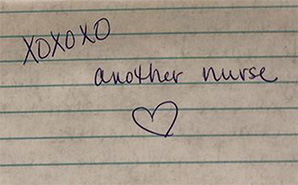 XOXOXO
another nurse